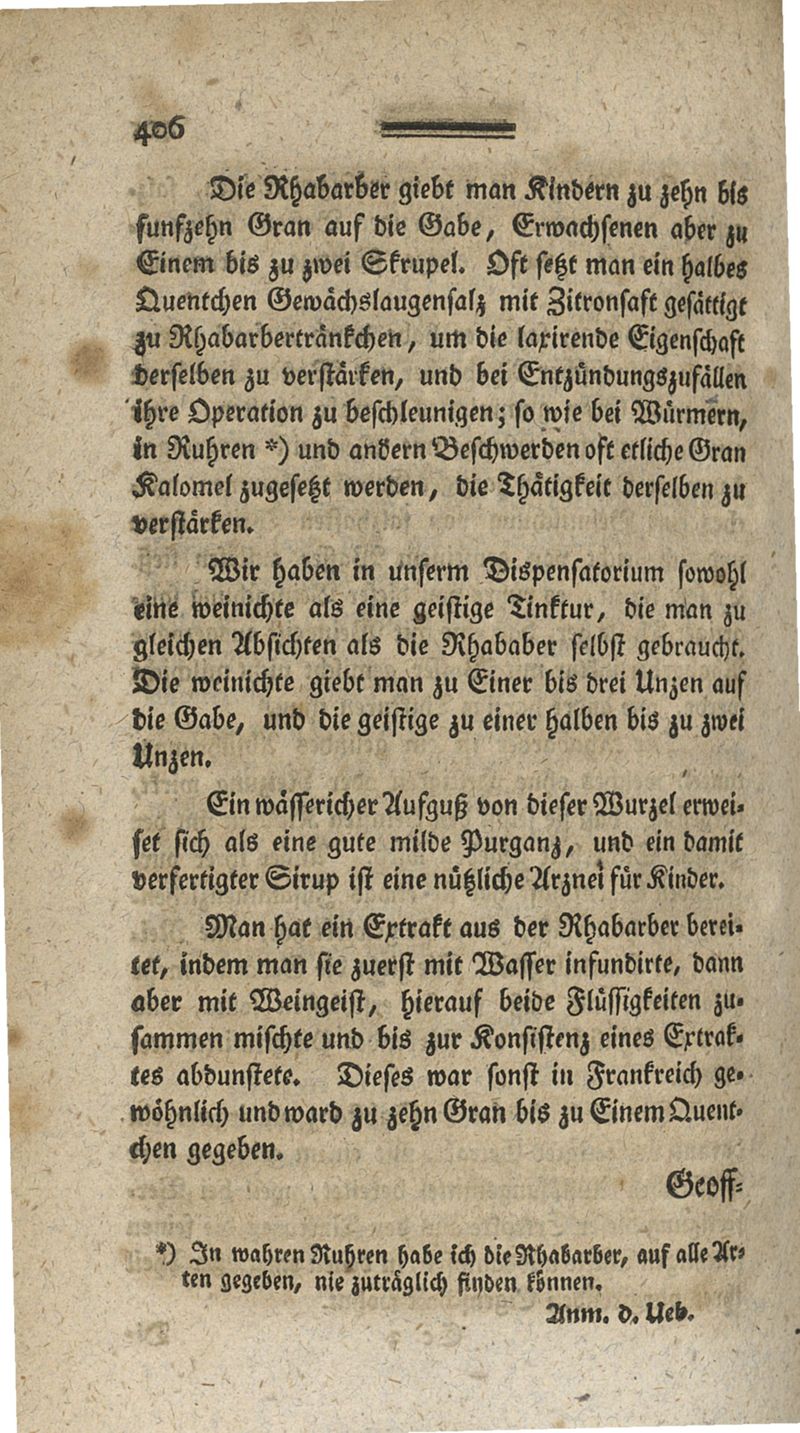 406
Die Rhabarber giebt man Kindern zu zehn bis
funfzehn Gran auf die Gabe, Erwachsenen aber zu
Einem bis zu zwei Skrupel. Oft setzt man ein halbes
Quentchen Gewächslaugensalz mit Zitronsaft gesättigt
zu Rhabarbertränkchen, um die laxirende Eigenschaft
derselben zu verstärken, und bei Entzündungszufällen
ihre Operation zu beschleunigen; so wie bei Würmern,
in Ruhren *) und andern Beschwerden oft etliche Gran
Kalomel zugesetzt werden, die Thätigkeit derselben zu
verstärken.
Wir haben in unserm Dispensatorium sowohl
eine weinichte als eine geistige Tinktur, die man zu
gleichen Absichten als die Rhababer selbst gebraucht.
Die weinichte giebt man zu Einer bis drei Unzen auf
die Gabe, und die geistige zu einer halben bis zu zwei
Unzen.
Ein wässericher Aufguß von dieser Wurzel erwei-
set sich als eine gute milde Purganz, und ein damit
verfertigter Sirup ist eine nützliche Arznei für Kinder.
Man hat ein Extrakt aus der Rhabarber berei-
tet, indem man sie zuerst mit Wasser infundirte, dann
aber mit Weingeist, hierauf beide Flüssigkeiten zu-
sammen mischte und bis zur Konsistenz eines Extrak-
tes abdunstete. Dieses war sonst in Frankreich ge-
wöhnlich und ward zu zehn Gran bis zu Einem Quent-
chen gegeben.
Geoff-
*) In wahren Ruhren habe ich die Rhabarber, auf alle Ar-
ten gegeben, nie zuträglich finden können.
Anm. d. Ueb.